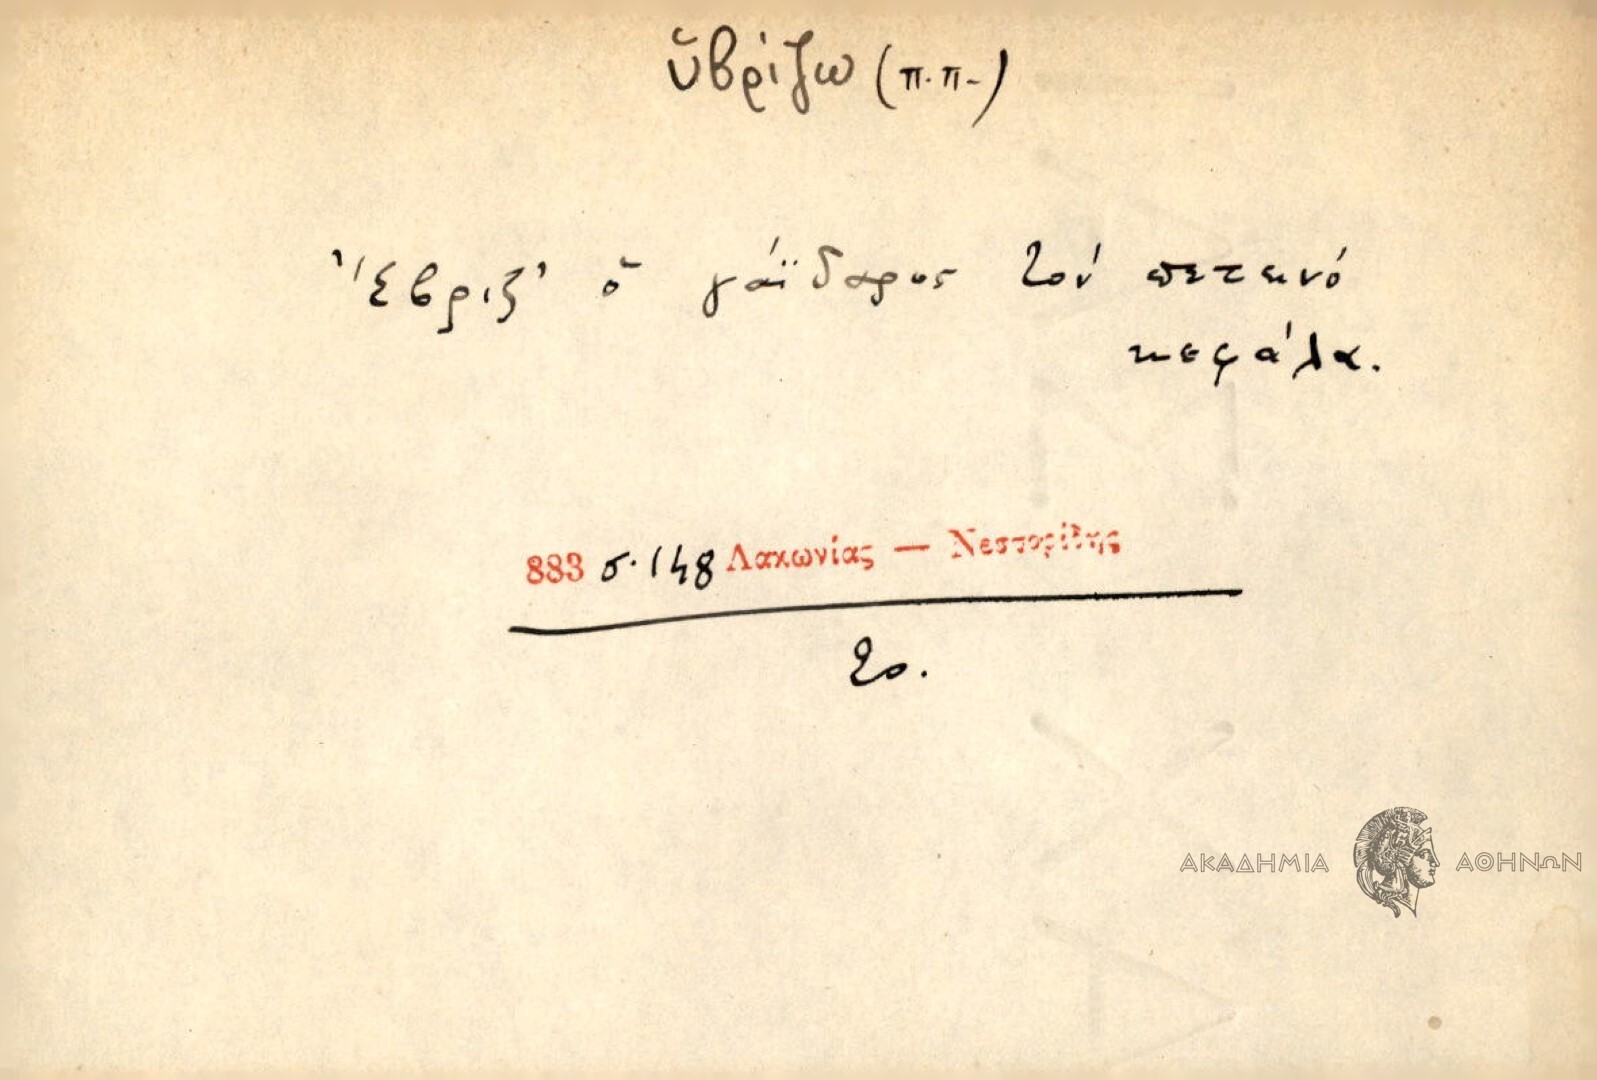 ὑβρίζω (π.π.)
Ἔβριζ' ὁ γάϊδαρος τὸν πετεινό
κεφάλα.
883 σ. 148 Λακωνίας — Νεστορίδης
ΑΚΑΔΗΜΙΑ ΑΘΗΝΩΝ